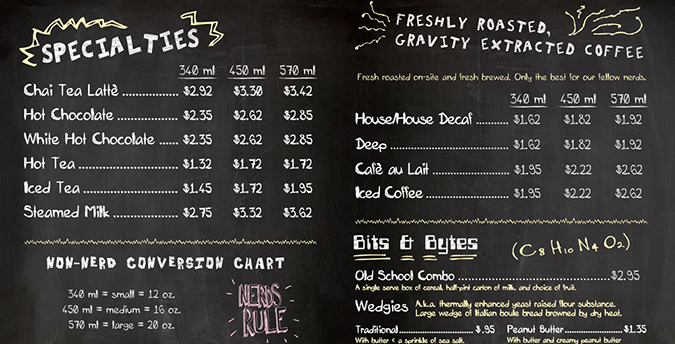 SPECIALTIES
340 ml 450 ml 570 ml
Chai Tea Lattè ................. $2.92 $3.30 $3.42
Hot Chocolate .................. $2.35 $2.62 $2.85
White Hot Chocolate ..... $2.35 $2.62 $2.85
Hot Tea .............................. $1.32 $1.72 $1.72
Iced Tea ............................ $1.45 $1.72 $1.95
Steamed Milk .................... $2.75 $3.32 $3.62
NON-NERD CONVERSION CHART
340 ml = small = 12 oz.
450 ml = medium = 16 oz.
570 ml = large = 20 oz.
NERDS
RULE
FRESHLY ROASTED,
GRAVITY EXTRACTED COFFEE
Fresh roasted on-site and fresh brewed. Only the best for our fellow nerds.
340 ml 450 ml 570 ml
House/House Decaf ......... $1.62 $1.82 $1.92
Deep .................................. $1.62 $1.82 $1.92
Cafè au Lait ...................... $1.95 $2.22 $2.62
Iced Coffee ....................... $1.95 $2.22 $2.62
Bits & Bytes (C8 H10 N4 O2)
Old School Combo ............................................ $2.95
A single serve box of cereal, half-pint carton of milk, and choice of fruit.
Wedgies A.k.a. thermally enhanced yeast raised flour substance.
Large wedge of Italian boule bread browned by dry heat.
Traditional ........................ $.95 Peanut Butter ................ $1.35
With butter & a sprinkle of sea salt. With butter and creamy peanut butter